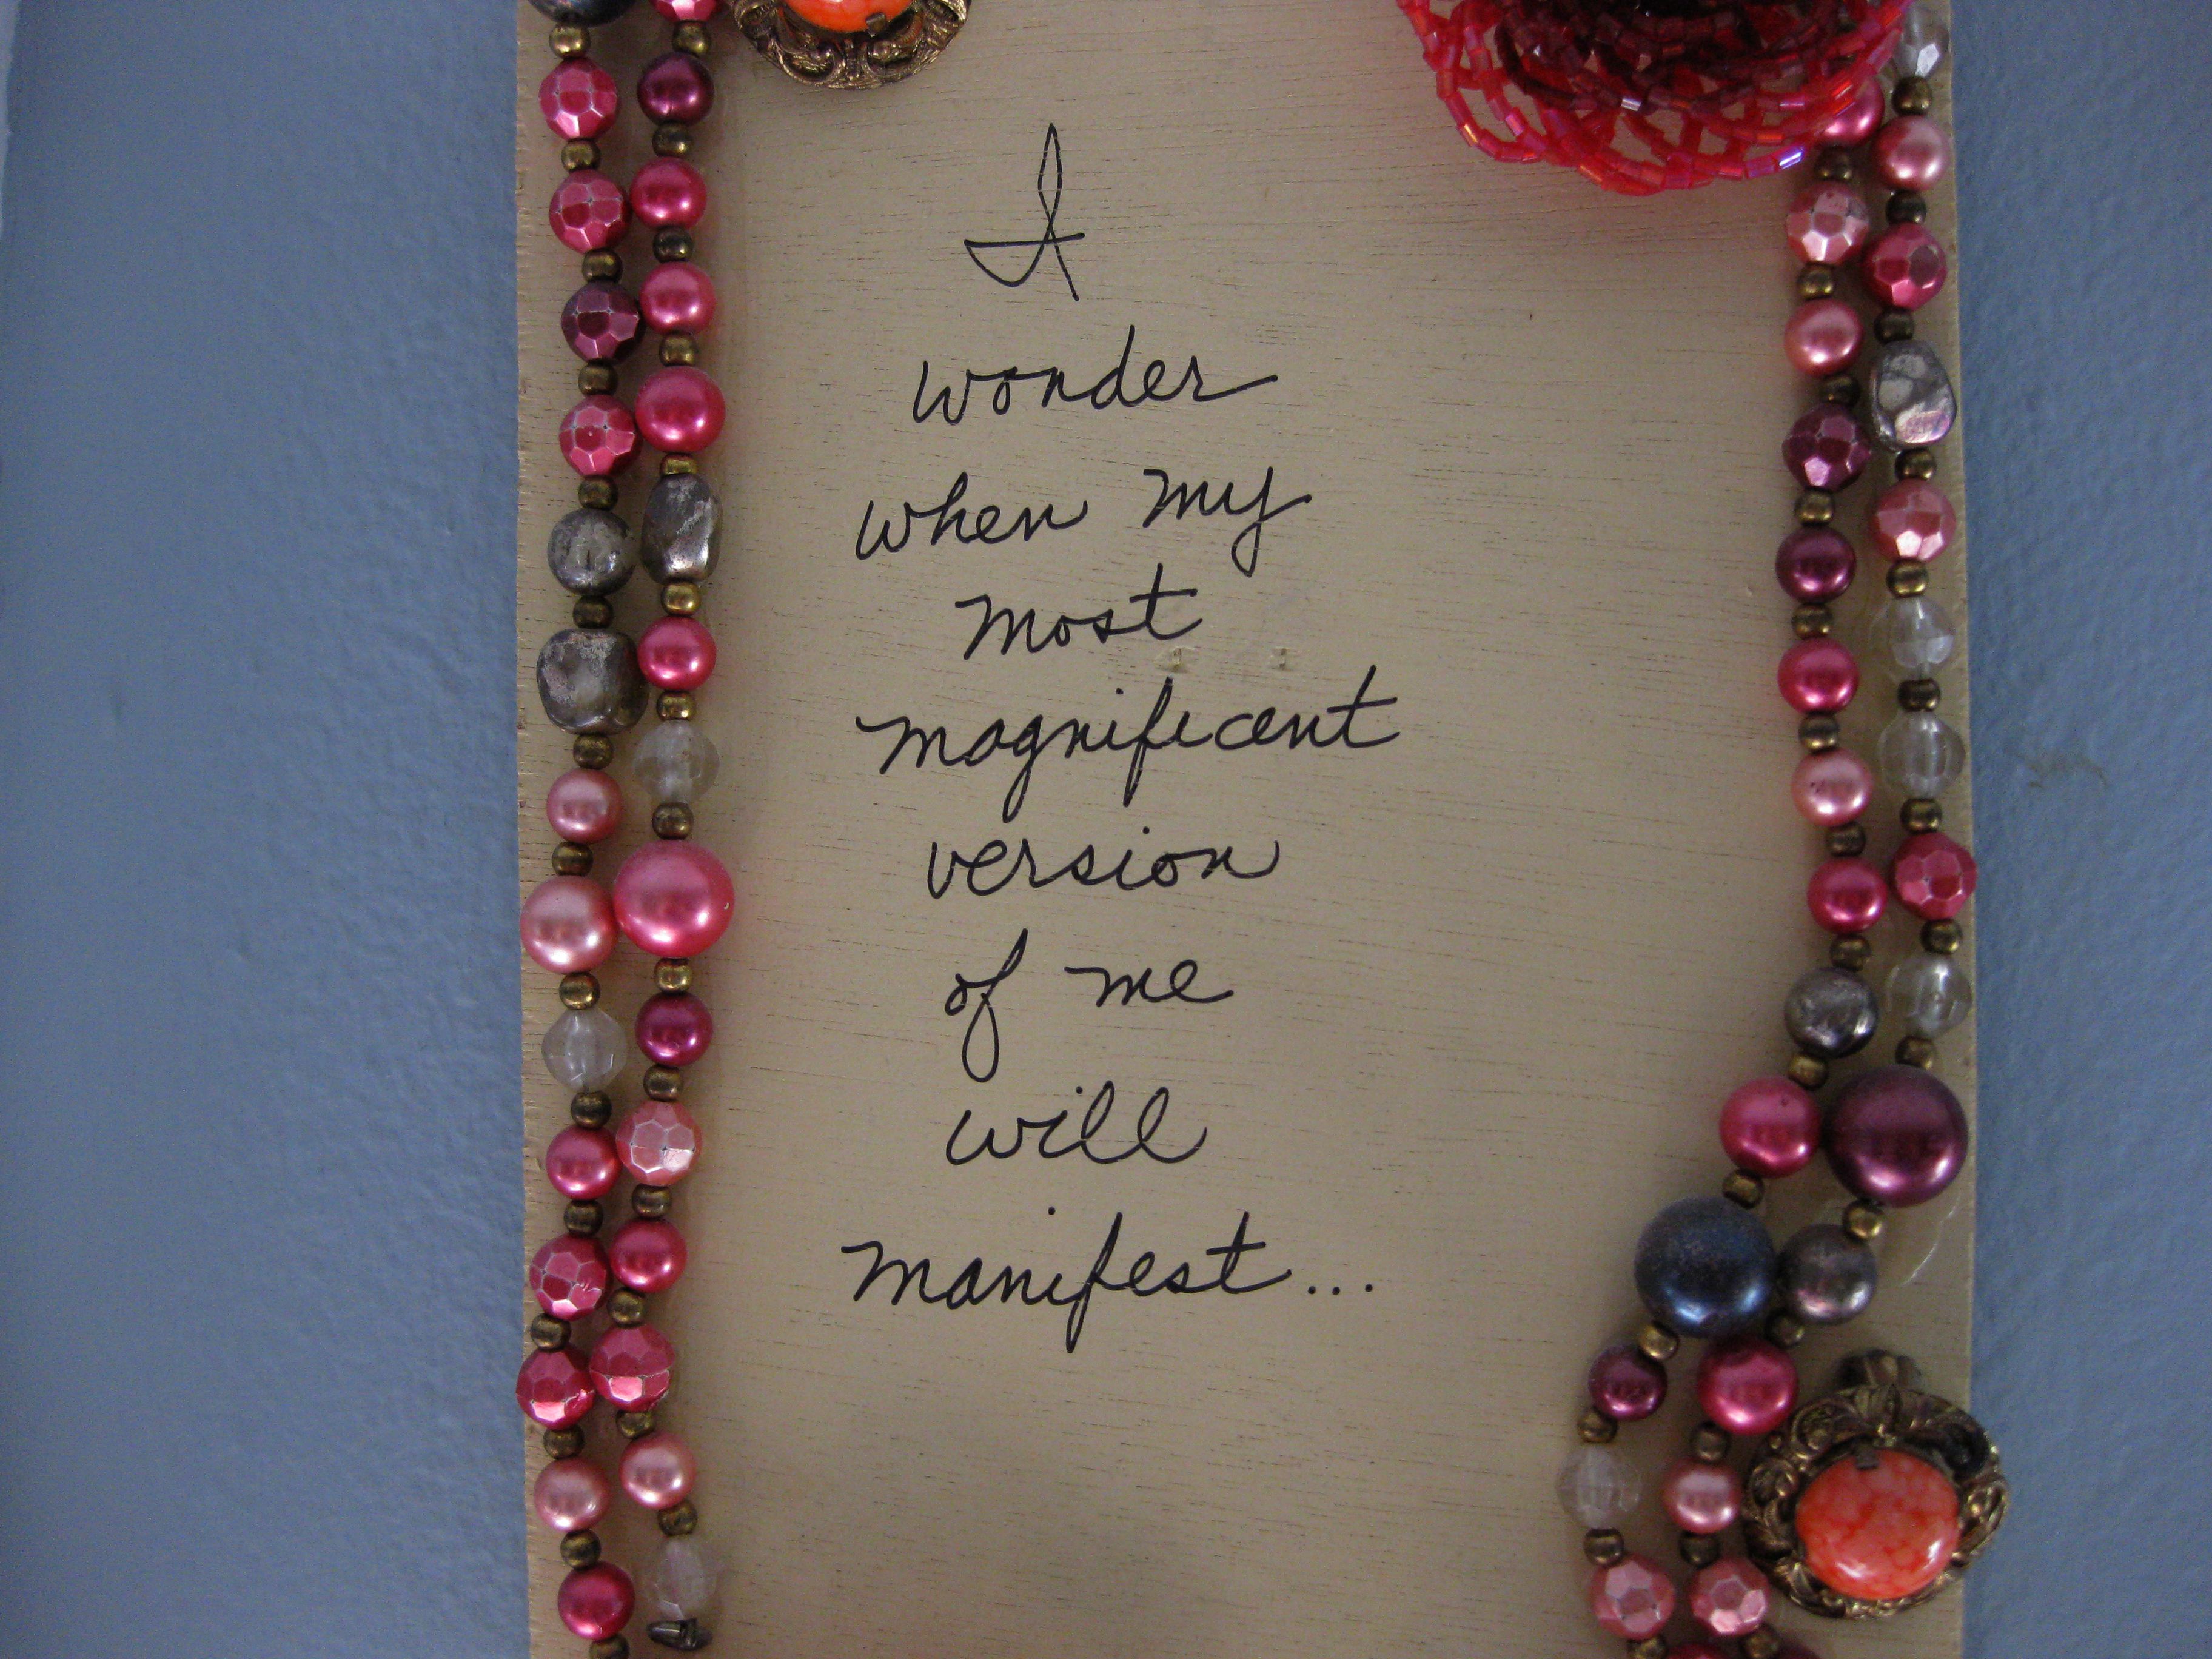 I
wonder
when my
most
magnificent
version
of me
will
manifest...